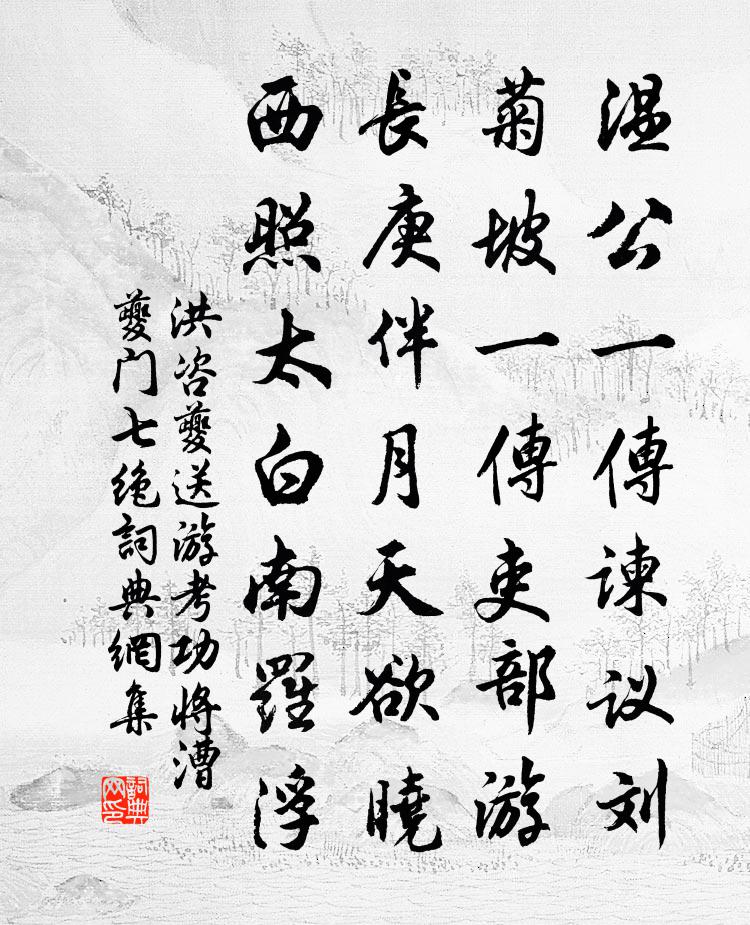 温公一傳諫议刘
菊坡一傳吏部游
長庚伴月天欲曉
西照太白南羅浮
洪咨夔送游考功将漕
夔门七绝詞典網集
詞典
网印